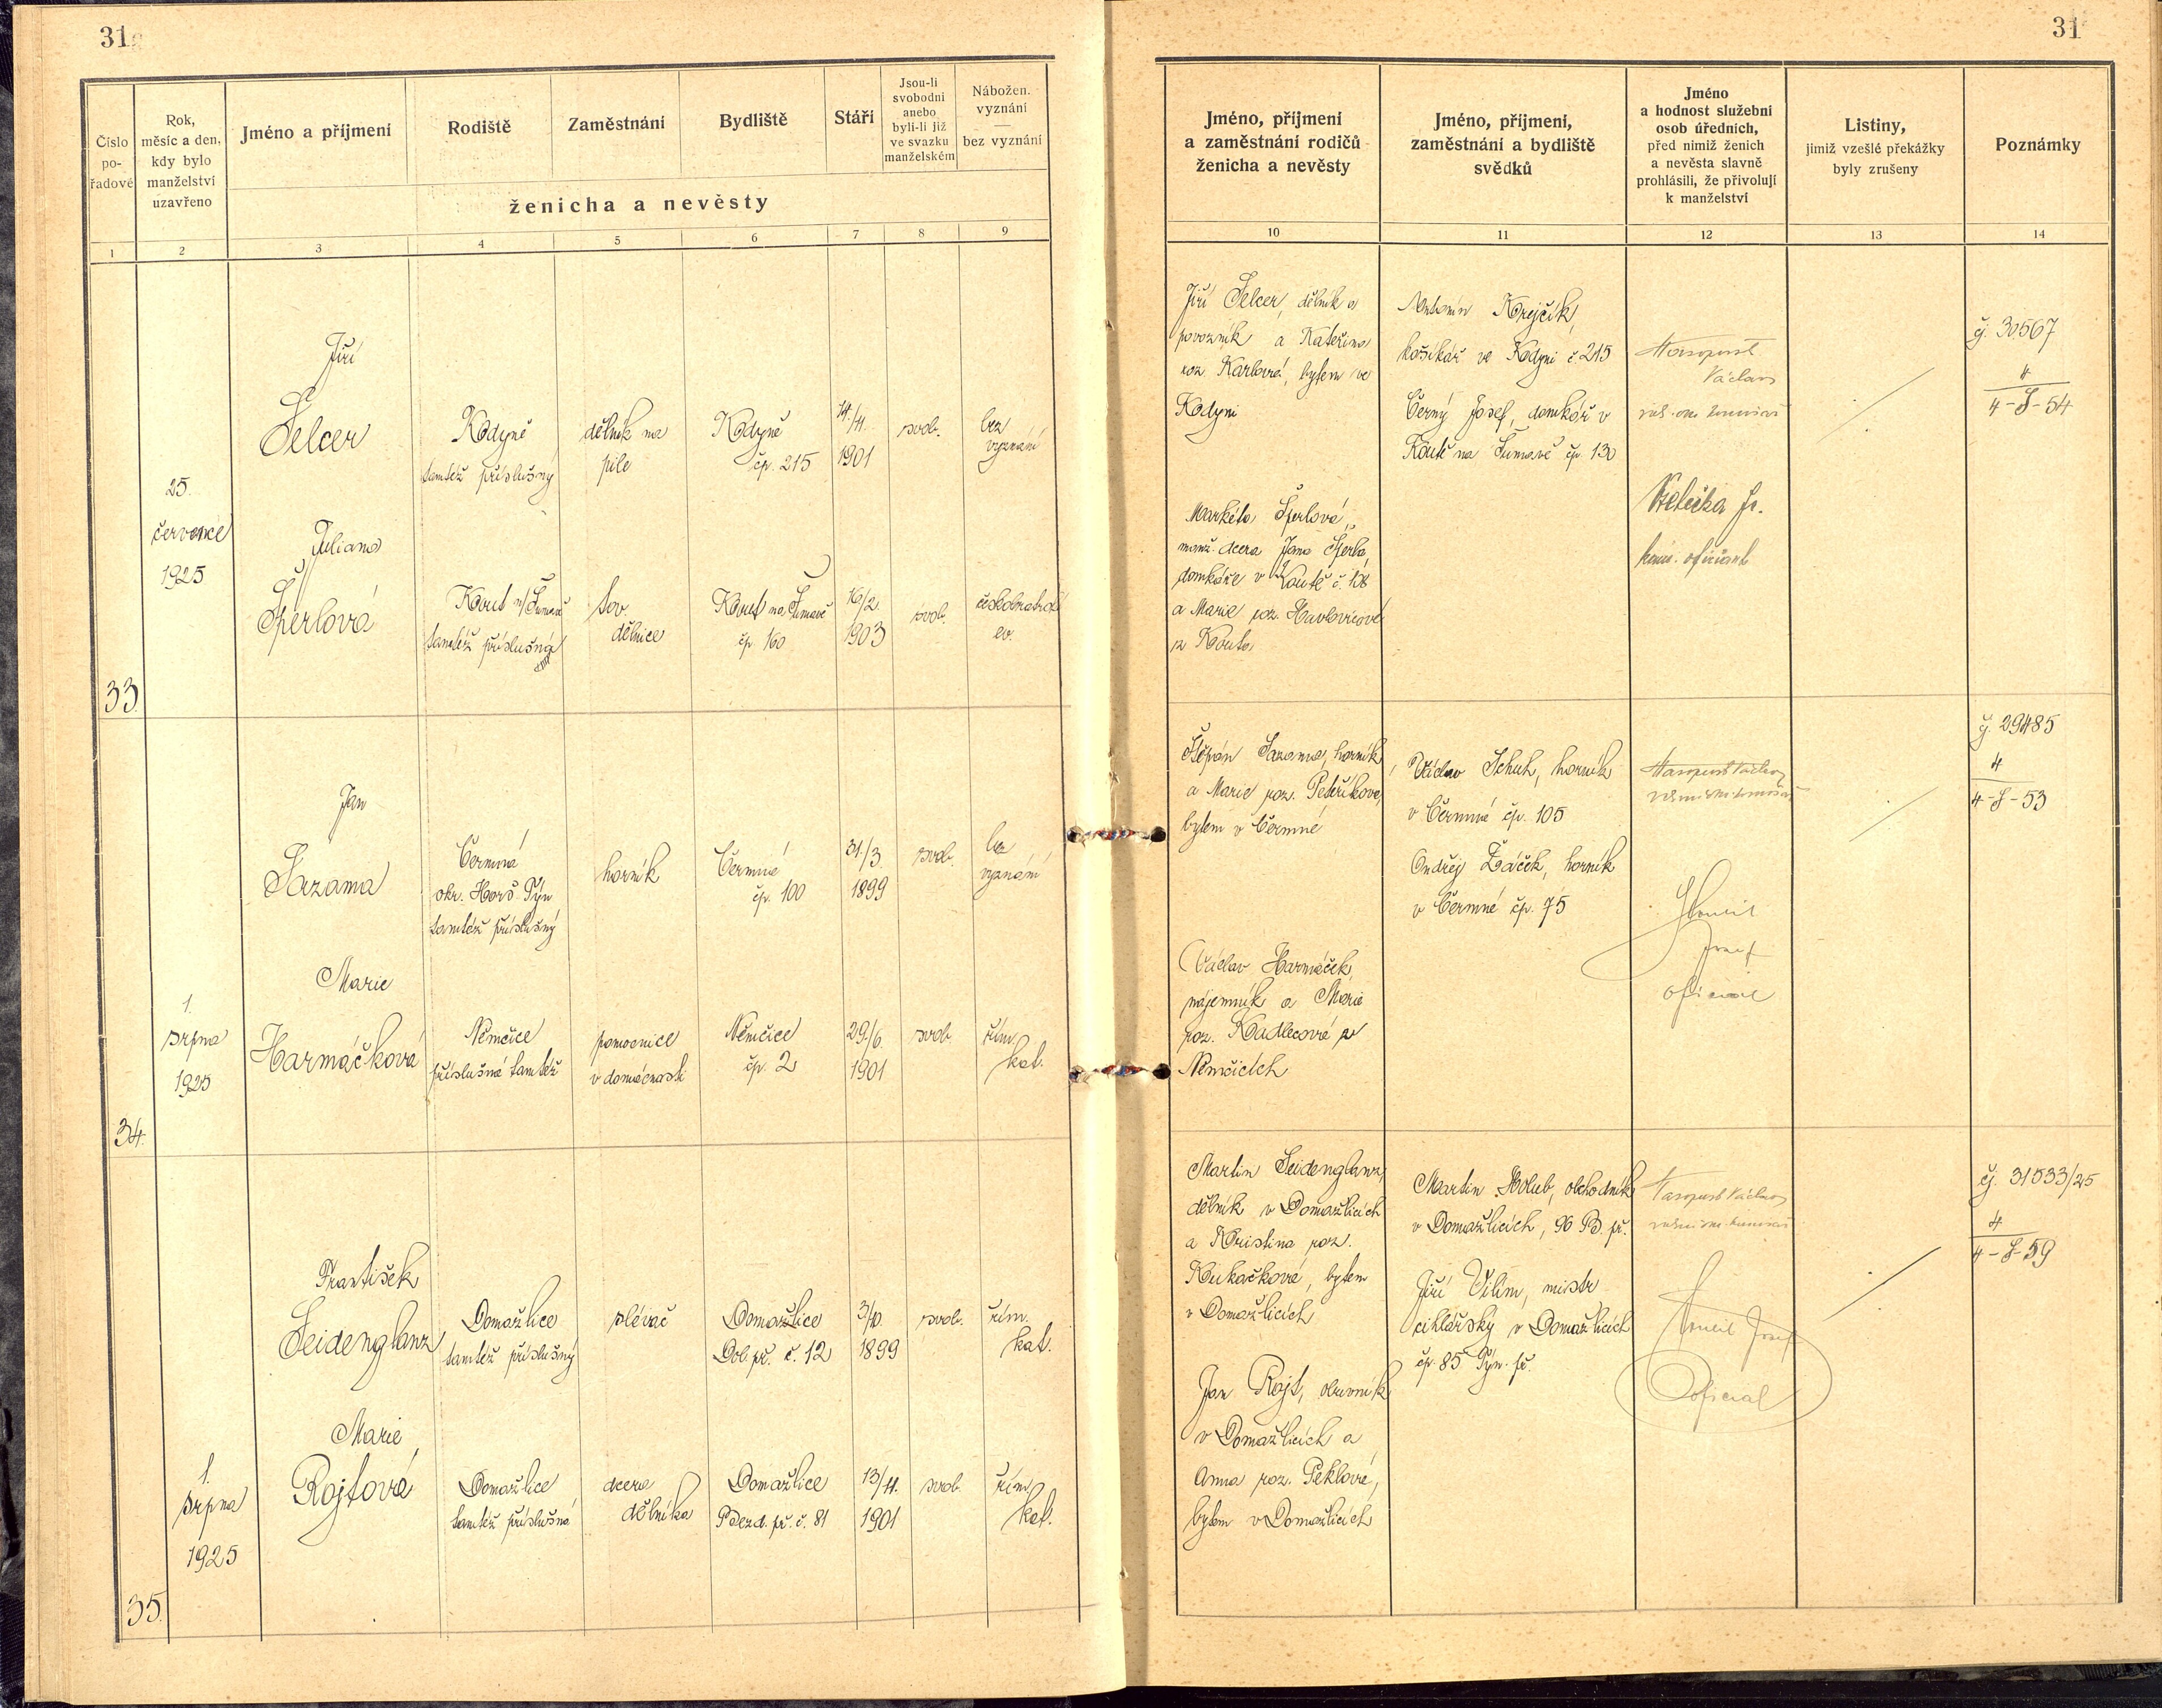 31
Číslo
po-
řadové
Rok,
měsíc a den,
kdy bylo
manželství
uzavřeno
Jméno a příjmení
Rodiště
Zaměstnání
Bydliště
Stáří
Jsou-li
svobodni
anebo
byli-li již
ve svazku
manželském
Nábožen.
vyznání
bez vyznání
ženicha a nevěsty
1 2 3 4 5 6 7 8 9
25.
července
1925
33.
Jiří
Šelcer
Kdyně
tamtéž příslušný
dělník na
pile
Kdyně
čp. 215
14./4.
1901
svob.
bez
vyznání
Juliana
Šperlová
Kout n/Šumavě
tamtéž příslušná
tov.
dělnice
Kout na Šumavě
čp 160
16/2.
1903
svob.
českobratrské
ev.
1.
srpna
1925
34.
Jan
Sazama
Čermná
okr. Horš. Týn
tamtéž příslušný
horník
Čermná
čp. 100
31./3.
1899
svob.
bez
vyznání
Marie
Harmáčková
Němčice
příslušná tamtéž
pomocnice
v domácnosti
Němčice
čp. 2
29./6.
1901
svob.
řím.
kat.
1.
srpna
1925
35.
František
Seidenglanz
Domažlice
tamtéž příslušný
slévač
Domažlice
Dol. př. č. 12
3/10.
1899
svob.
řím.
kat.
Marie
Rojtová
Domažlice
tamtéž příslušná
dcera
dělníka
Domažlice
Bezd. př. č. 81
13/4.
1901
svob.
řím.
kat.
31
Jméno, příjmení
a zaměstnání rodičů
ženicha a nevěsty
Jméno, příjmení,
zaměstnání a bydliště
svědků
Jméno
a hodnost služební
osob úředních,
před nimiž ženich
a nevěsta slavně
prohlásili, že přivolují
k manželství
Listiny,
jimiž vzešlé překážky
byly zrušeny
Poznámky
10 11 12 13 14
Jiří Šelcer, dělník a
povozník a Kateřina
roz. Karlová, bytem ve
Kdyni
Markéta Šperlová,
manž. dcera Jana Šperla,
domkáře v Koutě č.
a Marie roz. Havlovicové
z Kouta
Antonín Krejčík,
košíkář ve Kdyni č. 215
Černý Josef, domkář v
Koutě na Šumavě čp. 130
Masopust
Václav
kanc. oficiant
č. 30567
4
4-S-54
Štěpán Sazama, horník
a Marie roz. Peteříkova,
bytem v Čermné
Václav Harmáček,
nájemník a Marie
roz. Kadlecová z
Němčic
Václav Schuh, horník
v Čermné čp. 105
Ondřej Žáček, horník
v Čermné čp. 75
Masopust Václav
Josef
oficial
č. 29485
4
4-S-53
Martin Seidenglanz,
dělník v Domažlicích
a Kristina roz.
Kukačková, bytem
v Domažlicích
Jan Rojt, obuvník
v Domažlicích a
Anna roz. Peklová,
bytem v Domažlicích
Martin Holub, obchodník
v Domažlicích, 96 B. př.
Jiří Vilím, mistr
cihlářský v Domažlicích
čp. 85 Týn. př.
Masopust Václav
Josef
oficial
čj. 31533/25
4
4-S-59